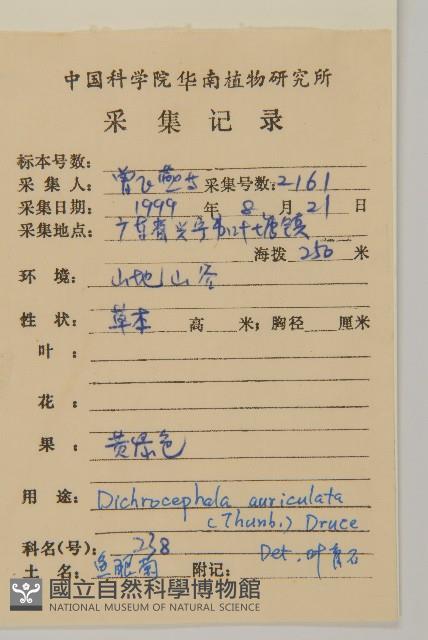 中国科学院华南植物研究所
采集记录
标本号数:
采集人: 曾飞燕 采集号数: 2161
采集日期: 1999 年 8 月 21 日
采集地点: 广东省兴宁市 塘镇
海拨 250 米
环境: 山地山谷
性状: 草本 高 米; 胸径 厘米
叶:
花:
果: 黄绿色
用途: Dichrocephala auriculata
(Thunb.) Druce
科名(号): 238
Det. 叶育石
土名: 鱼眼菊 附记:
國立自然科學博物館
NATIONAL MUSEUM OF NATURAL SCIENCE